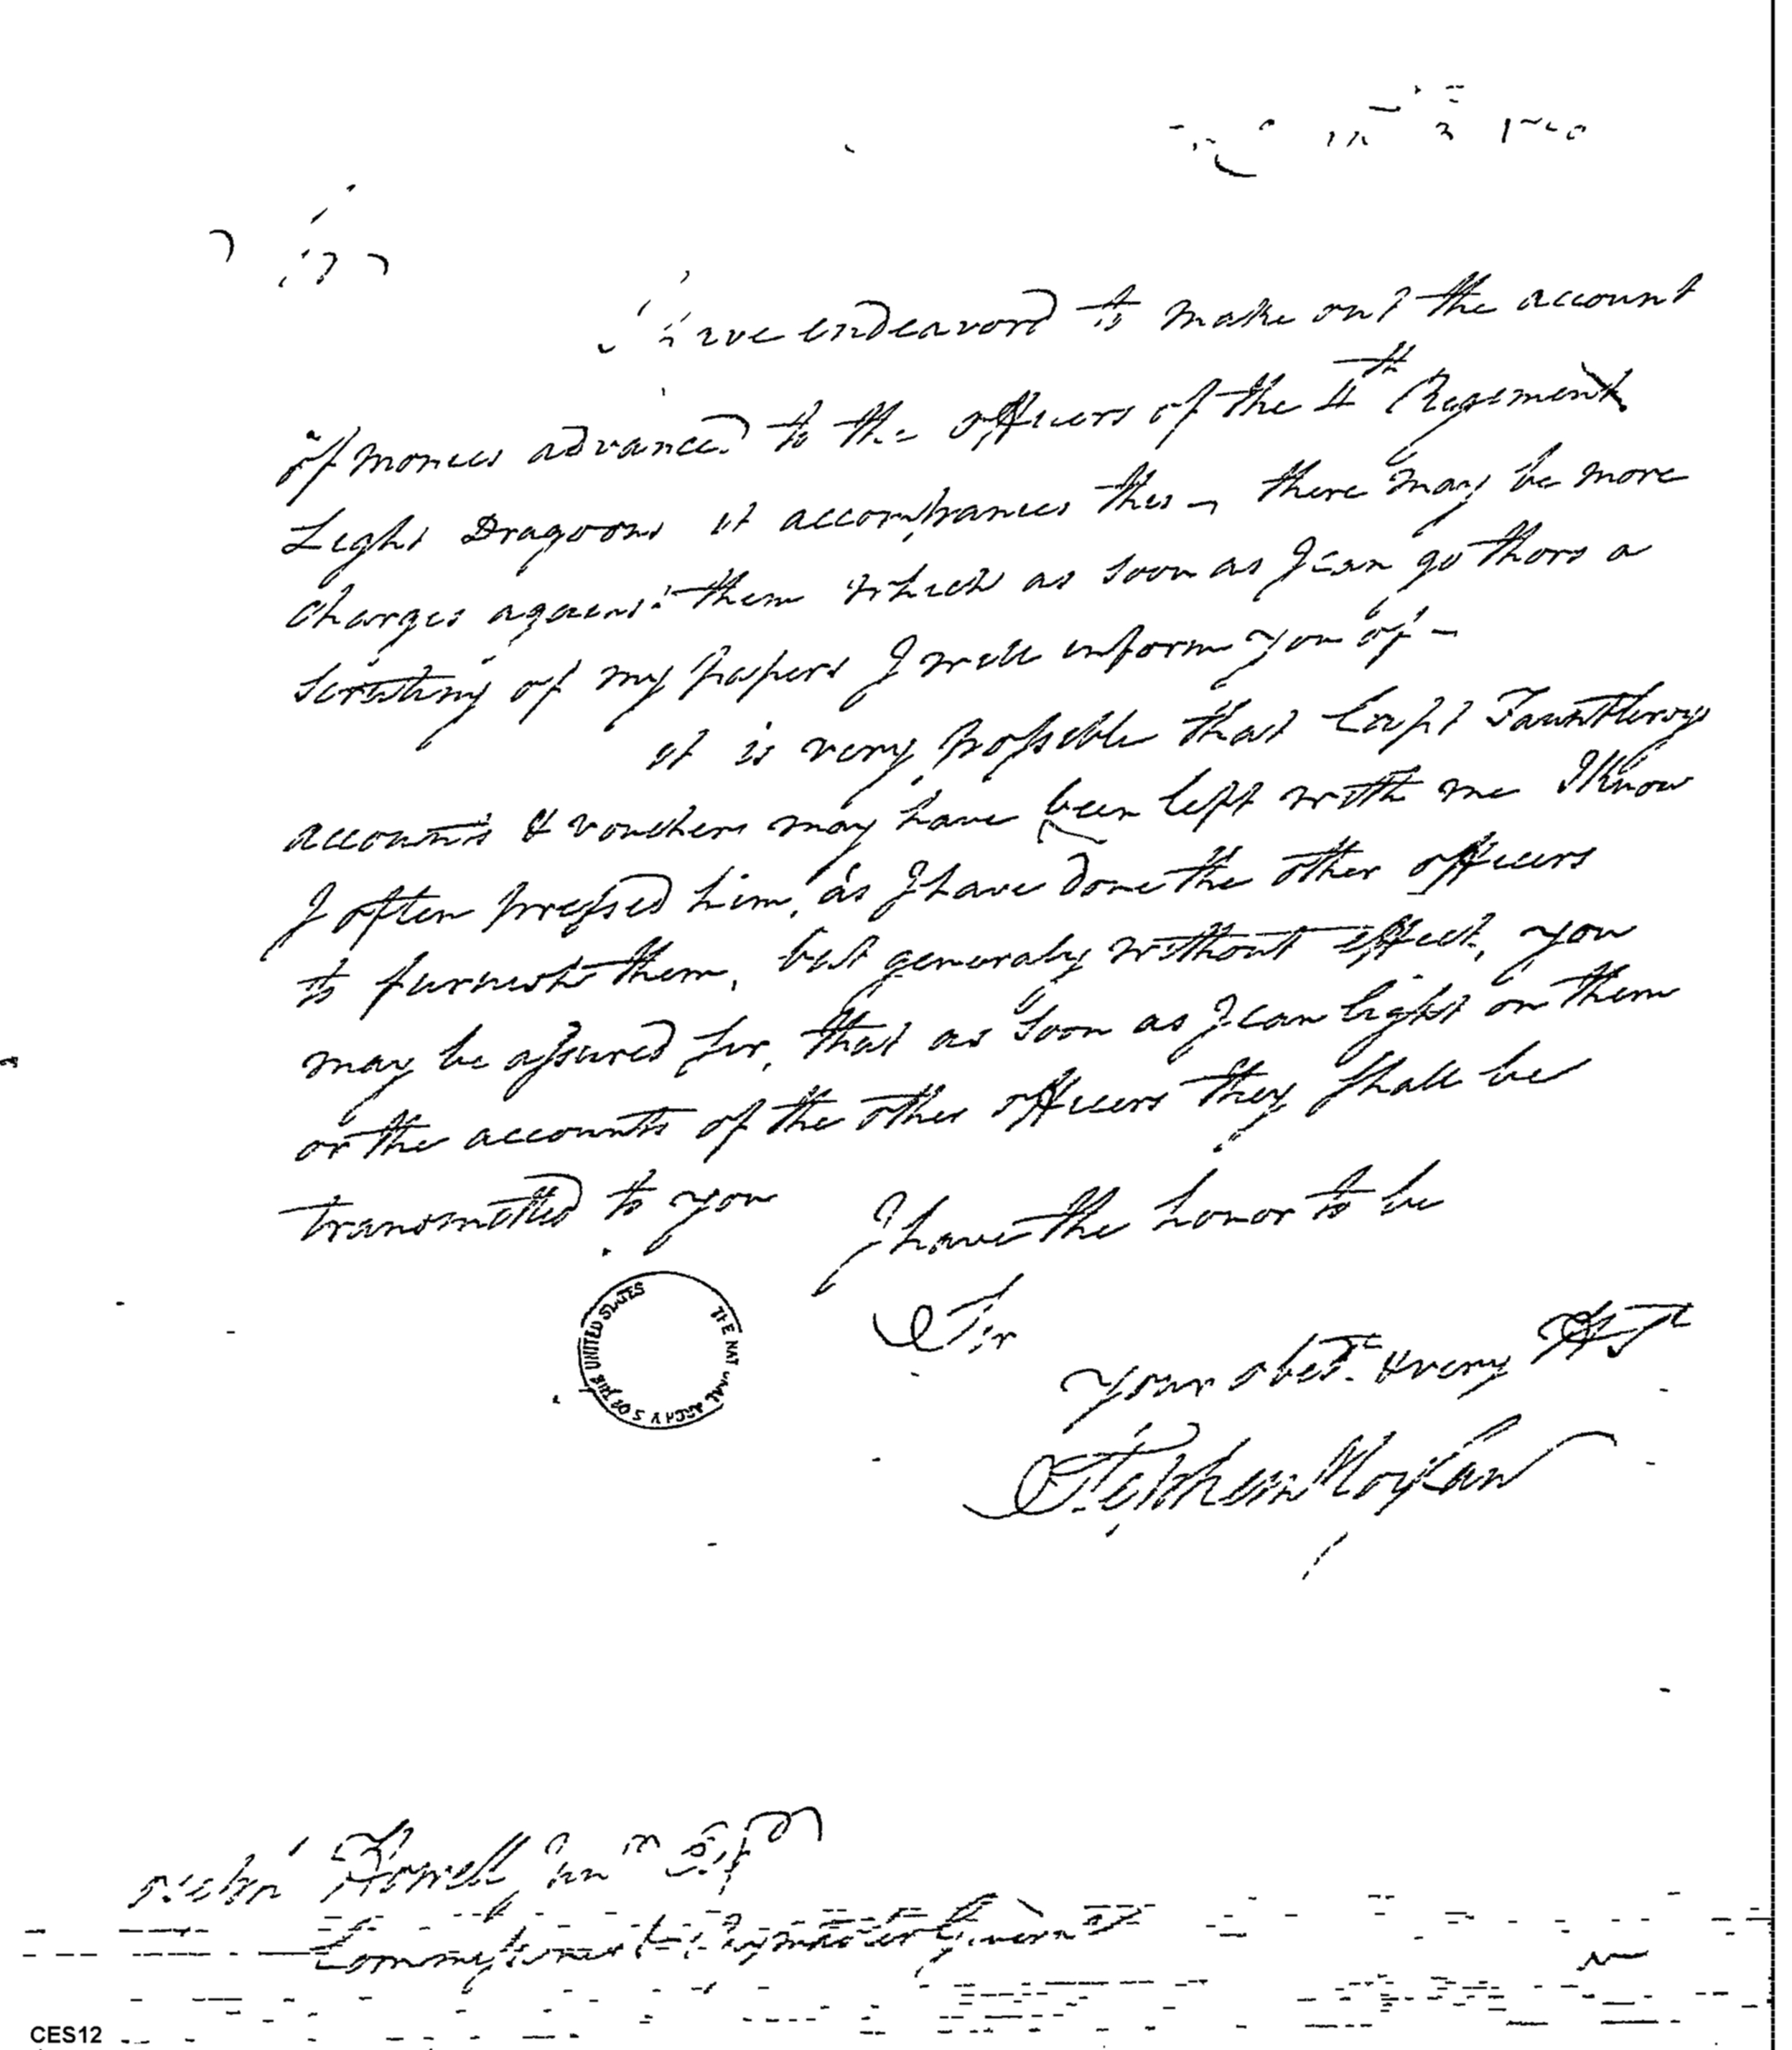 have endeavord to make out the account
of monies advanced to the officers of the 4th Regiment
Light Dragoons it accompanies this – there may be more
Charges against them which as soon as I can go thoro a
scrutiny of my papers I will inform you of –
it is very possible that Capt Fauntleroys
accounts & vouchers may have been left with me I know
I often pressed him, as I have done the other officers
to furnish them, but generaly without effect, you
may be assured Sir, that as soon as I can light on them
or the accounts of the other officers they shall be
transmitted to you
I have the honor to be
Sir
Your obet. & very
Stephen Moylan
THE NATIONAL ARCHIVES OF THE UNITED STATES
John Howell Junr Esqr
Commissioner & Paymaster General
CES12